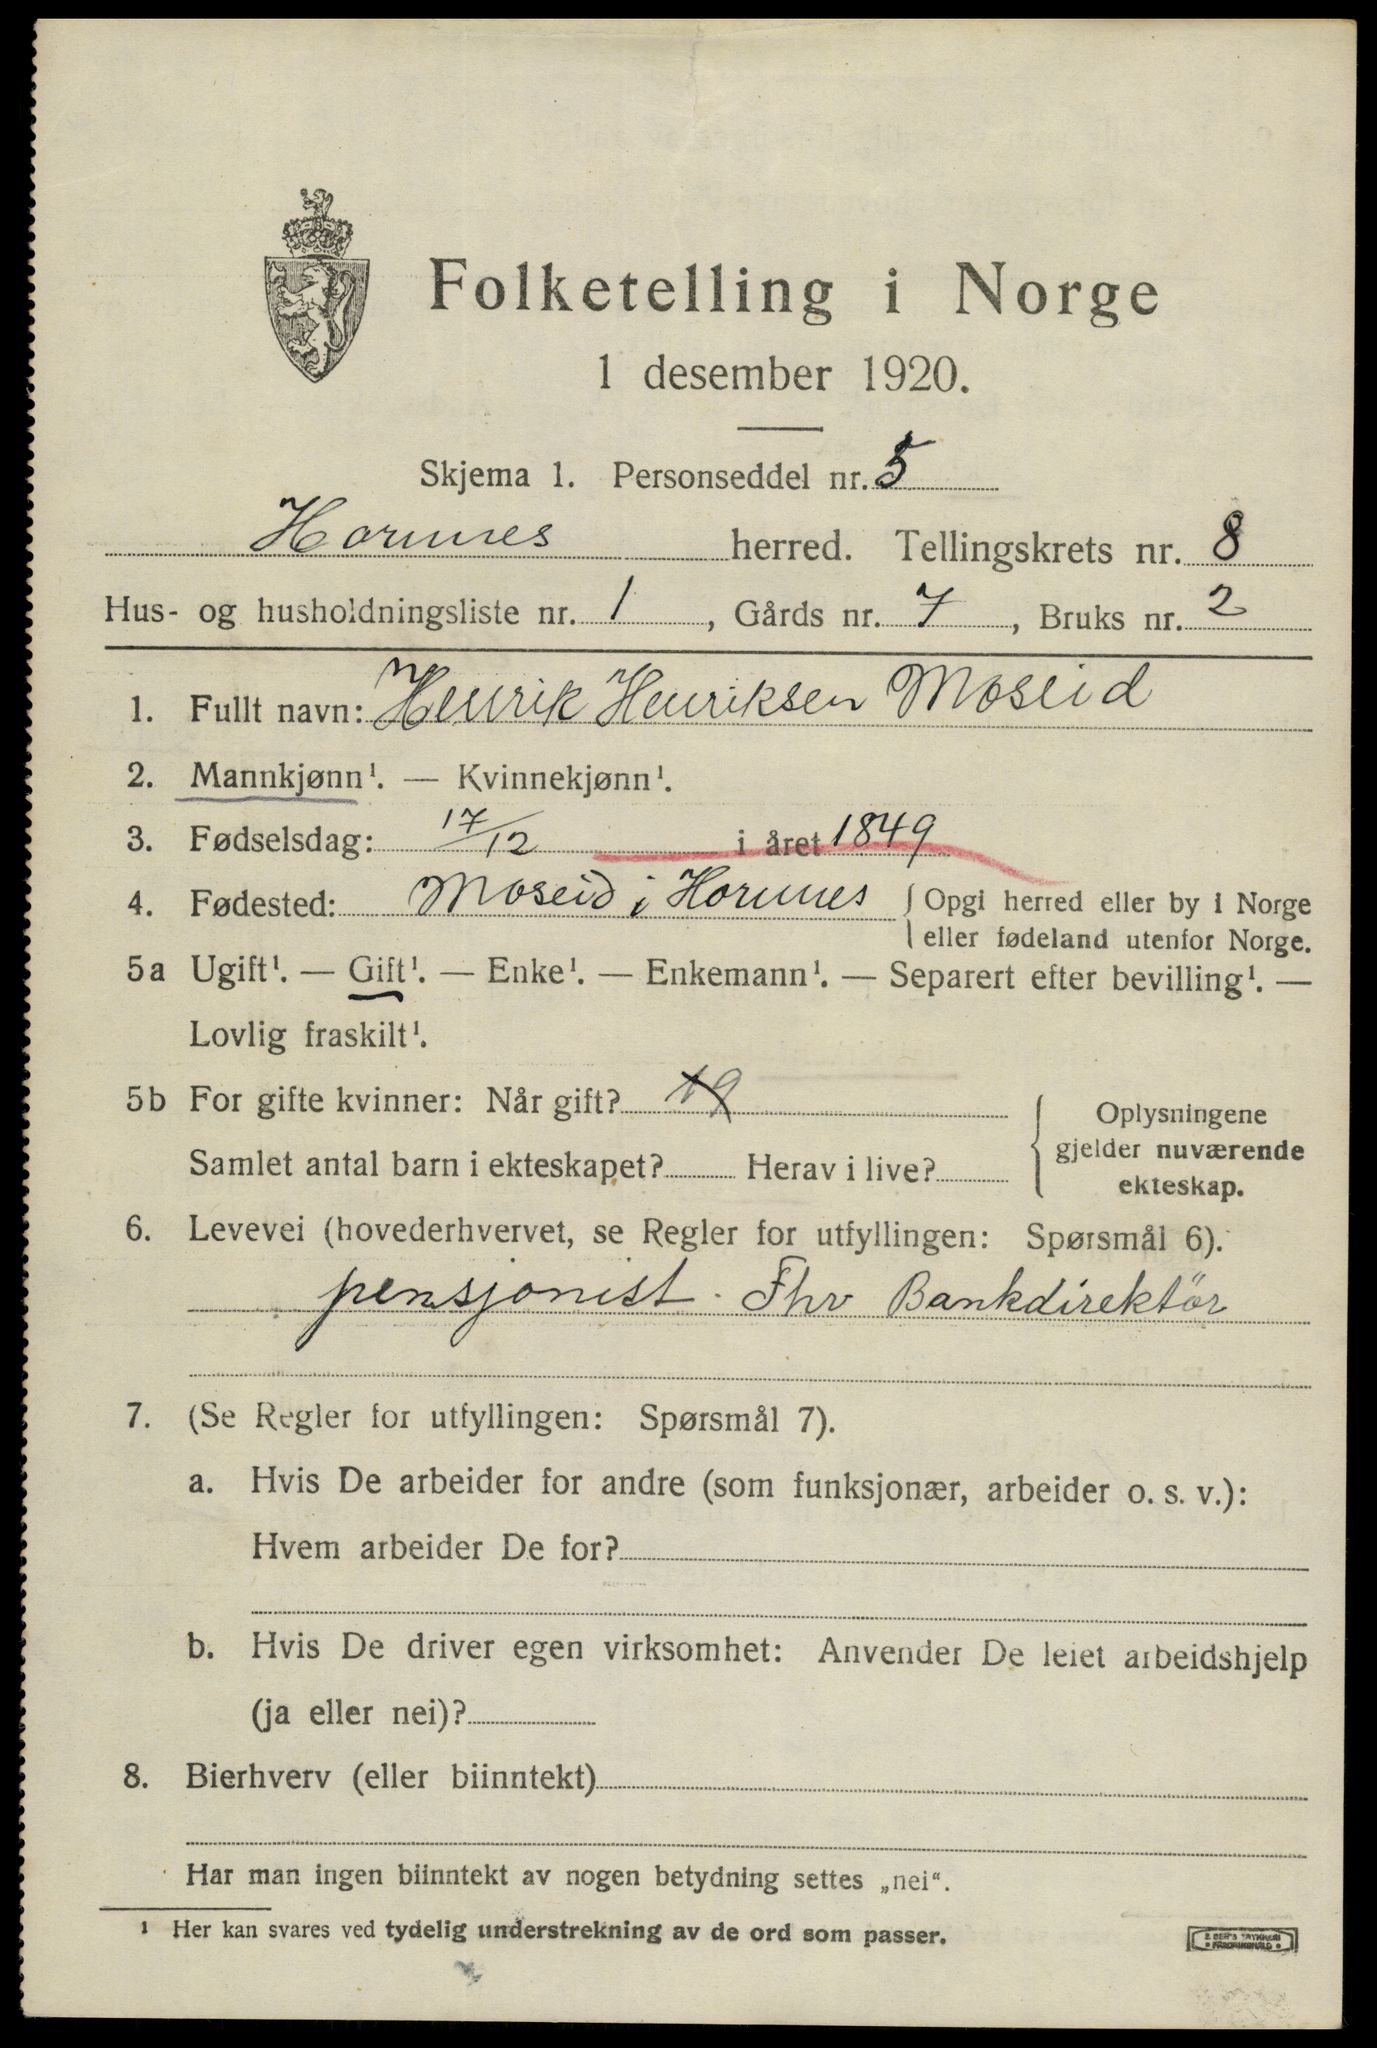 Folketelling i Norge
1 desember 1920.
Skjema 1. Personseddel nr. 5
Hornnes herred. Tellingskrets nr. 8
Hus- og husholdningsliste nr. 1, Gårds nr. 7, Bruks nr. 2
1. Fullt navn: Henrik Henriksen Moseid
2. Mannkjønn¹. — Kvinnekjønn¹.
3. Fødselsdag: 17/12 i året 1849
4. Fødested: Moseid i Hornnes { Opgi herred eller by i Norge
eller fødeland utenfor Norge.
5a Ugift¹. — Gift¹. — Enke¹. — Enkemann¹. — Separert efter bevilling¹. —
Lovlig fraskilt¹.
5b For gifte kvinner: Når gift? 19
Samlet antal barn i ekteskapet? Herav i live?
Oplysningene
gjelder nuværende
ekteskap.
6. Levevei (hovederhvervet, se Regler for utfyllingen: Spørsmål 6).
pensjonist. Fhv Bankdirektör
7. (Se Regler for utfyllingen: Spørsmål 7).
a. Hvis De arbeider for andre (som funksjonær, arbeider o. s. v.):
Hvem arbeider De for?
b. Hvis De driver egen virksomhet: Anvender De leiet arbeidshjelp
(ja eller nei)?
8. Bierhverv (eller biinntekt)
Har man ingen biinntekt av nogen betydning settes „nei“.
¹ Her kan svares ved tydelig understrekning av de ord som passer.